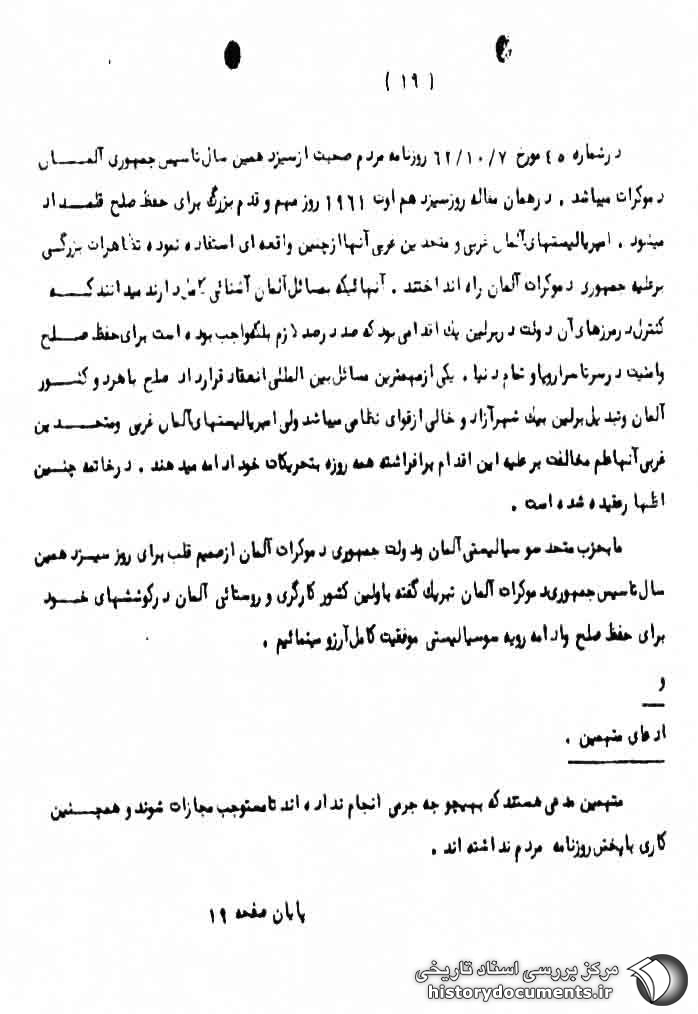 ( ۱۹ )
درشماره ٤٥ مورخ ٦٢/١٠/٧ روزنامه مردم صحبت ازسیزدهمین سال تاسیس جمهوری آلمـــان
دموکرات میباشد . درهمان مقاله روزسیزدهم اوت ۱۹٦۱ روز مهم و قدم بزرگی برای حفظ صلح قلمـداد
میشود . امپریالیستهای آلمان غربی و متحدین غربی آنها ازچنین واقعه ای استفاده نموده تظاهرات بزرگـی
برعلیه جمهوری دموکرات آلمان راه انداختند . آنهائیکه بمسائل آلمان آشنائی کامل دارند میدانند کــه
کنترل درمرزهای آن دولت دربرلین یك اقدامی بود که صددرصد لازم بلکه واجب بوده است برای حفظ صـلح
وامنیت درسرتاسر اروپا و تمام دنیا . یکی ازمهمترین مسائل بین المللی انعقاد قرارداد صلح باهردو کشـور
آلمان وتبدیل برلین بیك شهرآزاد و خالی ازقوای نظامی میباشد ولی امپریالیستهای آلمان غربی ومتحــدین
غربی آنها علم مخالفت برعلیه این اقدام برافراشته همه روزه بتحریکات خود ادامه میدهند . درخاتمه چنـین
اظهارعقیده شده است .
مابحزب متحد سوسیالیستی آلمان ودولت جمهوری دموکرات آلمان ازصمیم قلب برای روز سیـزدهمین
سال تاسیس جمهوری دموکرات آلمان تبریك گفته باولین کشور کارگری و روستائی آلمان درکوششهای خـود
برای حفظ صلح وادامه رویه سوسیالیستی موفقیت کامل آرزو مینمائیم .
و
ادعای متهمین .
متهمین مدعی هستند که بهیچوجه جرمی انجام نداده اند تا مستوجب مجازات شوند و همچـنین
کاری باپخش روزنامه مردم نداشته اند .
پایان صفحه ۱۹
مرکز بررسی اسناد تاریخی
historydocuments.ir